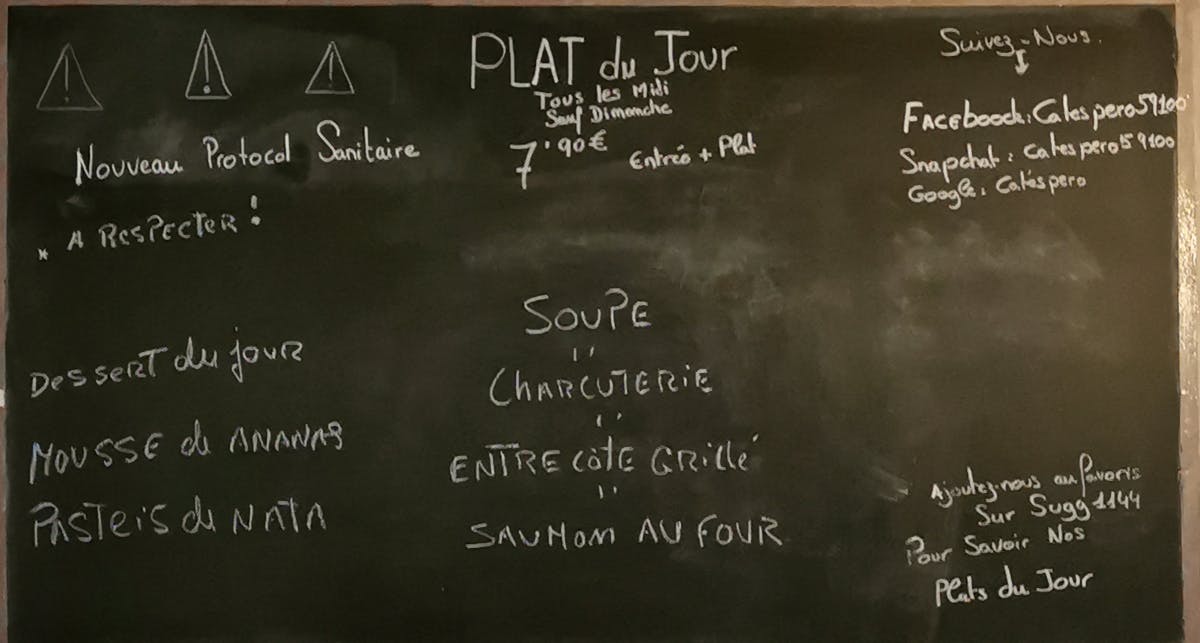 Nouveau Protocol Sanitaire
* A RESPECTER !
Dessert du jour
MOUSSE de ANANAS
PASTEIS de NATA
PLAT du Jour
Tous les Midi
Sauf Dimanche
7.90€ Entreé + Plat
SOUPE
''
CHARCUTERIE
''
ENTRE CÔTE GRILLÉ
''
SAUMOM AU FOUR
Suivez-Nous.
Facebook: Calespero59100
Snapchat: Calespero59100
Google: Calespero
Ajoutez-nous au favoris
Sur Sugg1144
Pour Savoir Nos
Plats du Jour